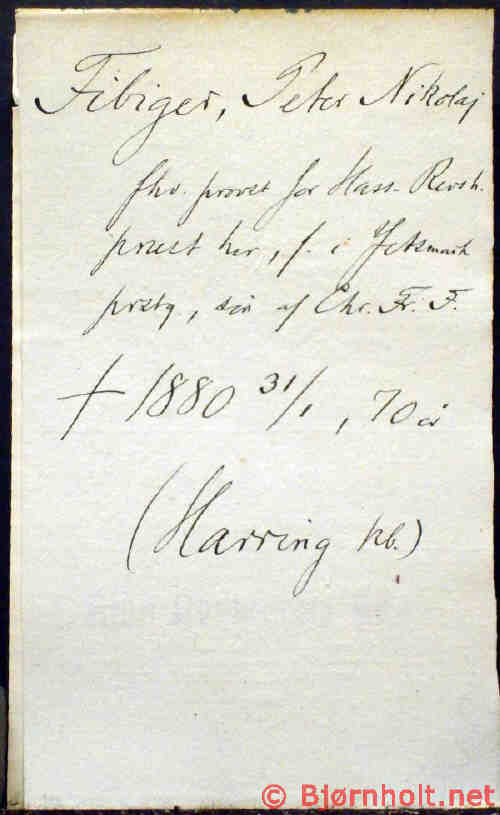 Fibiger, Peter Nikolaj
fhv. provst for Hass- Revsh.
præst her, f. i Jetsmark
prstg, søn af Chr. Fr. F.
† 1880 31/1, 70 år
(Harring kb.)
© Bjørnholt.net